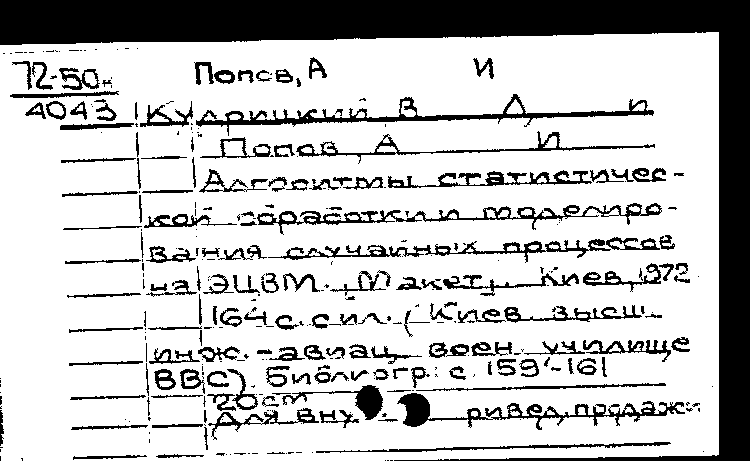 72-50н Попов, А И
4043 Кудрицкий В Д, и
Попов, А И
Алгоритмы статистичес-
кой обработки и моделиро-
вания случайных процессов
на ЭЦВМ. [Макет]. Киев, 1972
164 с. с ил. (Киев. высш.
инж.-авиац. воен. училище
ВВС). Библиогр: с. 159-161
20см
Для вну ривед. продажи